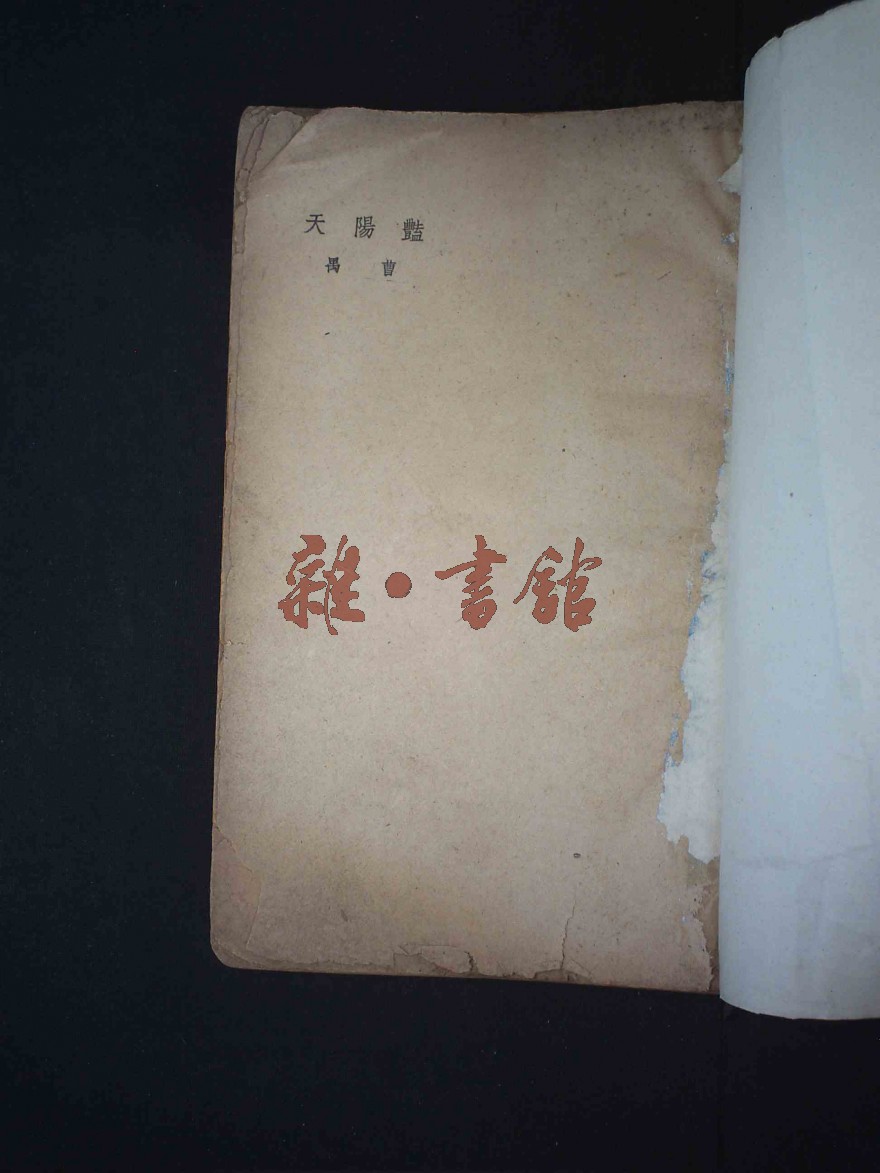 豔陽天
曹禺
雜·書館